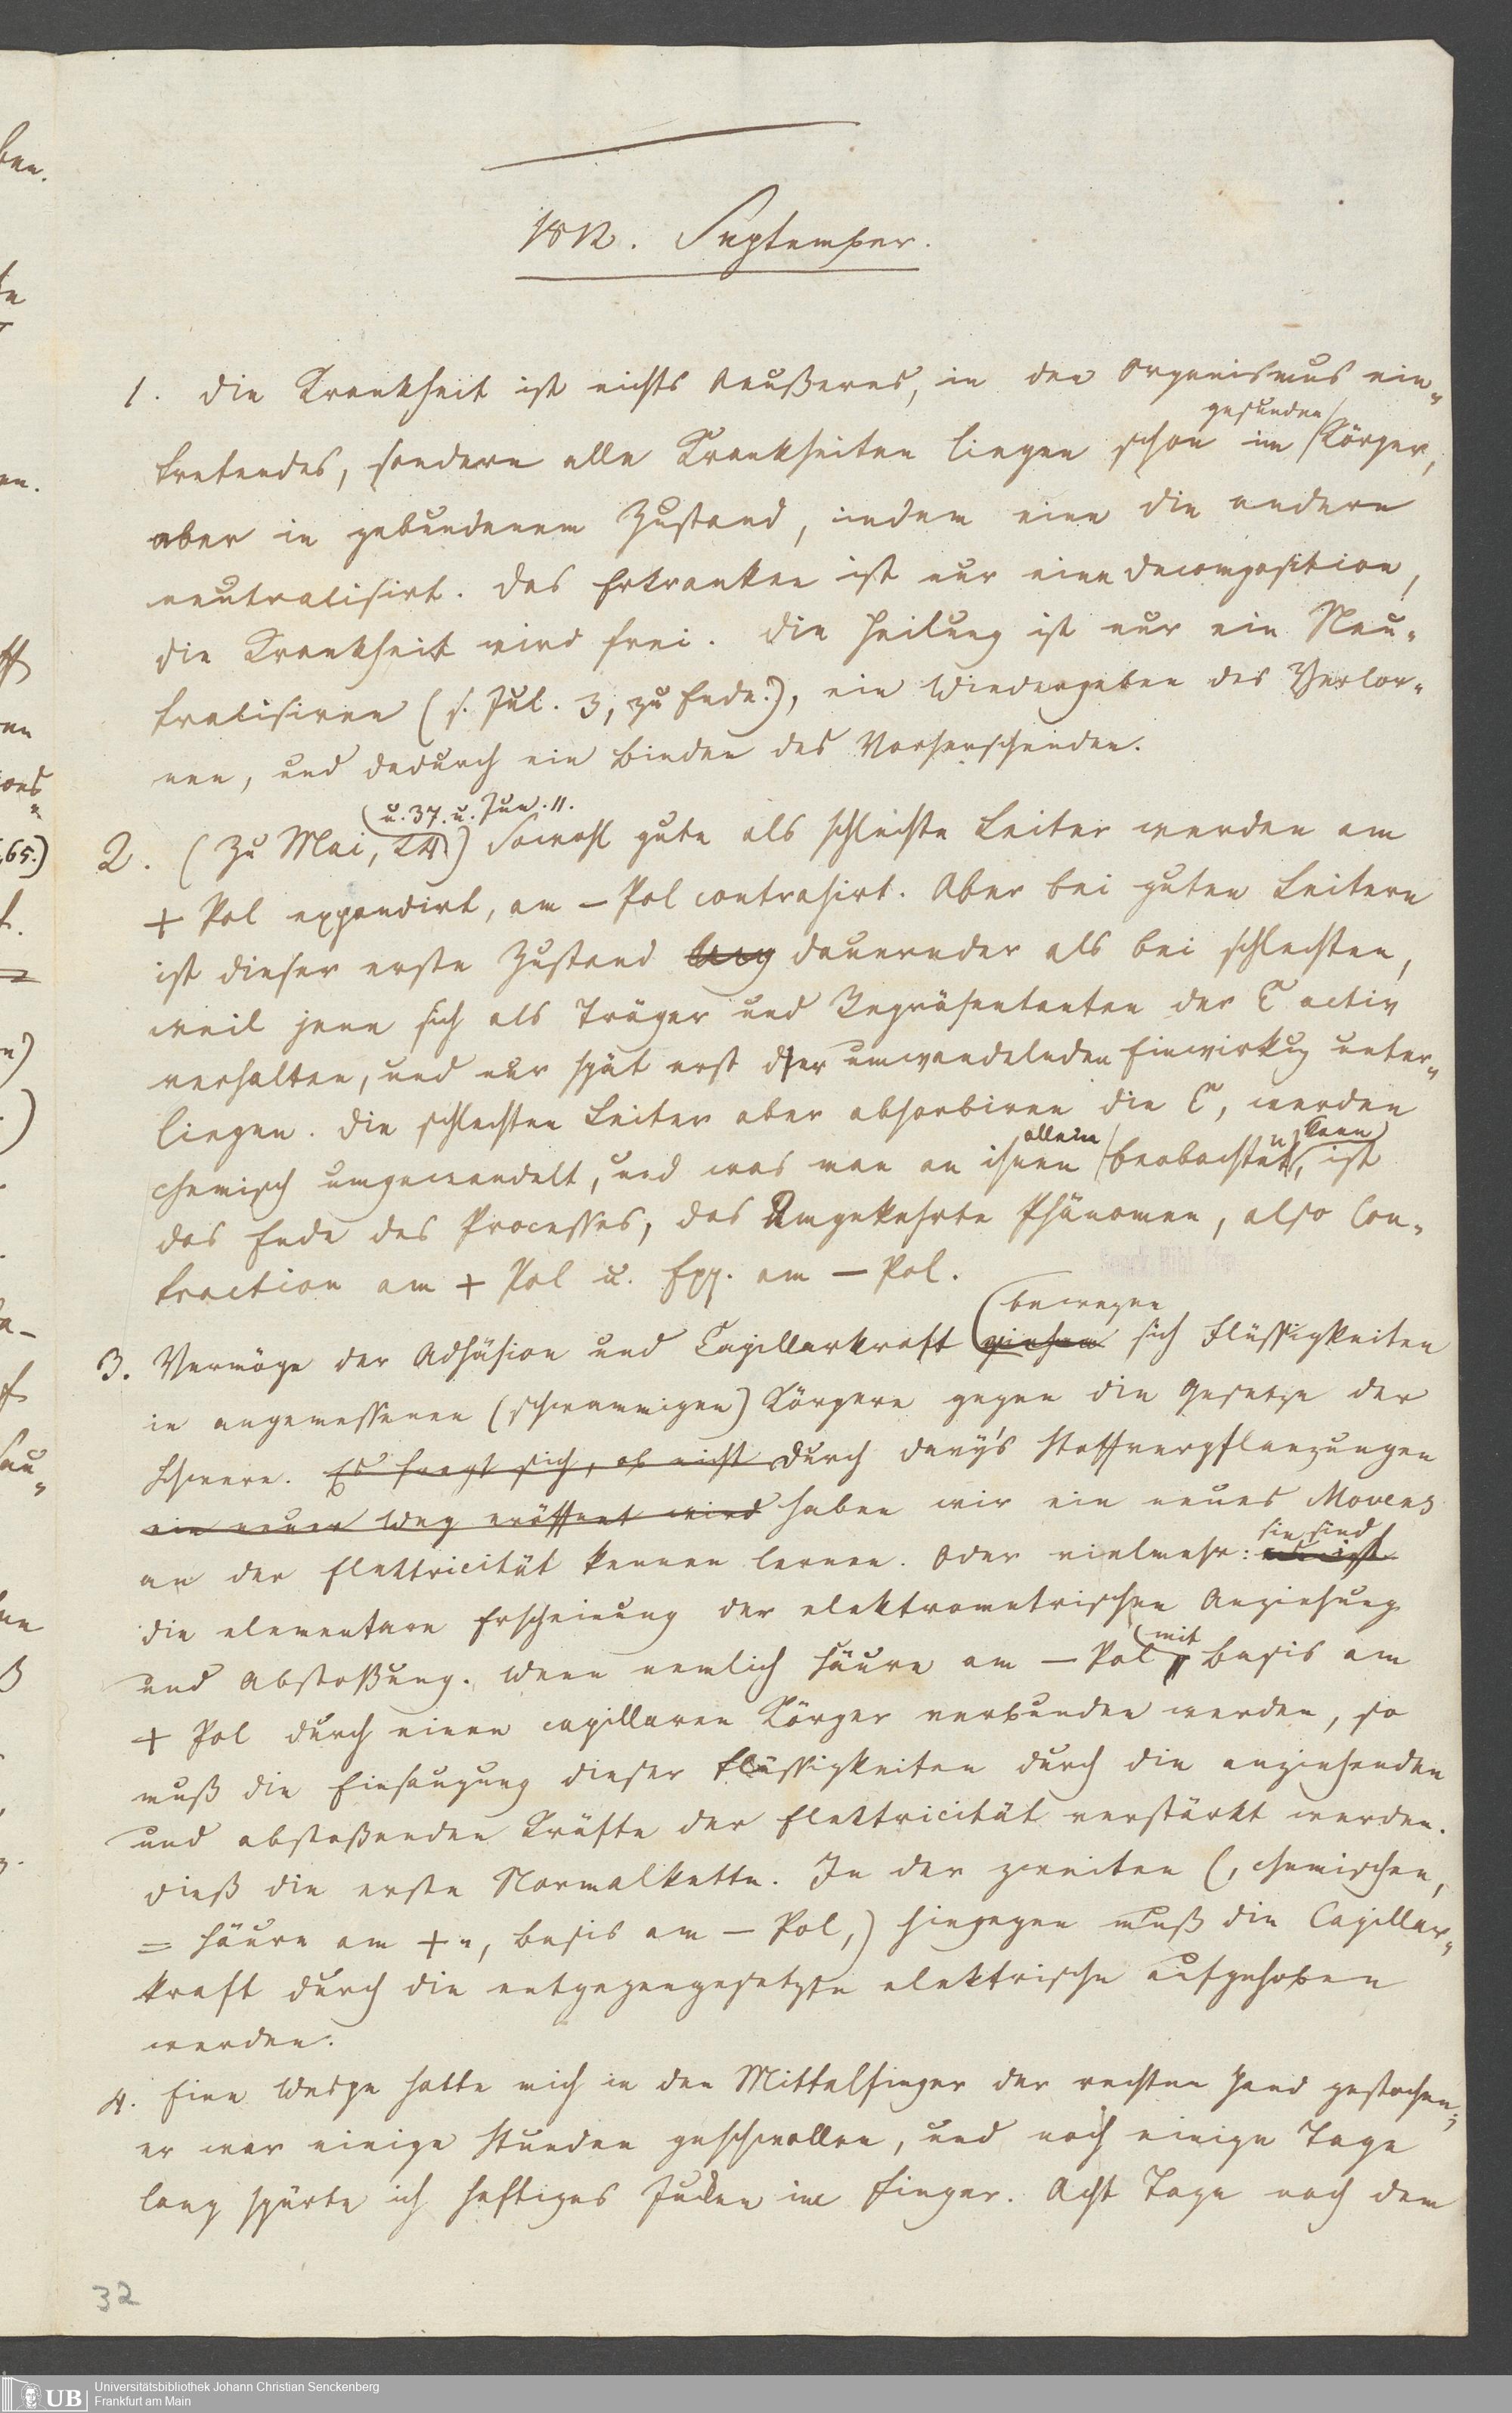 1812. September.
1. Die Krankheit ist nichts Aeußeres, in den Organismus ein-
tretendes, sondern alle Krankheiten liegen schon im gesunden Körper,
aber in gebundenem Zustand, indem eine die andere
neutralisirt. Das Erkranken ist nur eine Decomposition,
die Krankheit wird frei. Die Heilung ist nur ein Neu-
tralisiren (s. Jul. 3, zu Ende.), ein Wiedergeben des Verlor-
nen, und dadurch ein Binden des Vorherrschenden.
2. (Zu Mai, u. 37. u. Jun. 11.) Sowohl gute als schlechte Leiter werden am
+ Pol expandirt, am – Pol contrahirt. Aber bei guten Leitern
ist dieser erste Zustand dauernder als bei schlechten,
weil jene sich als Träger und Repräsentanten der E activ
verhalten, und nur spät erst der umwandelnden Einwirkung unter-
liegen. Die schlechten Leiter aber absorbiren die E, werden
chemisch umgewandelt, und was man an ihnen allein beobachten kann, ist
das Ende des Processes, das Umgekehrte Phänomen, also Con-
traction am + Pol u. Exp. am – Pol.
3. Vermöge der Adhäsion und Capillarkraft bewegen ziehen sich Flüssigkeiten
in angemessenen (schwammigen) Körpern gegen die Gesetze der
Schwere. Es fragt sich, ob nicht Durch Davy's Stoffverpflanzungen
ein neuer Weg eröffnet wird haben wir ein neues Movens
an der Elektricität kennen lernen. Oder vielmehr: sie sind
die elementare Erscheinung der elektrometrischen Anziehung
und Abstoßung. Wenn nemlich Säure am – Pol mit Basis am
+ Pol durch einen capillaren Körper verbunden werden, so
muß die Einsaugung dieser Flüssigkeiten durch die anziehenden
und abstoßenden Kräfte der Elektricität verstärkt werden.
Dieß die erste Normalkette. In der zweiten (, chemischen,
= Säure am +, Basis am – Pol,) hingegen muß die Capillar-
kraft durch die entgegengesetzte elektrische aufgehoben
werden.
4. Eine Wespe hatte mich in den Mittelfinger der rechten Hand gestochen;
er war einige Stunden geschwollen, und noch einige Tage
lang spürte ich heftiges Jucken im Finger. Acht Tage nach dem
32
UB
Universitätsbibliothek Johann Christian Senckenberg
Frankfurt am Main